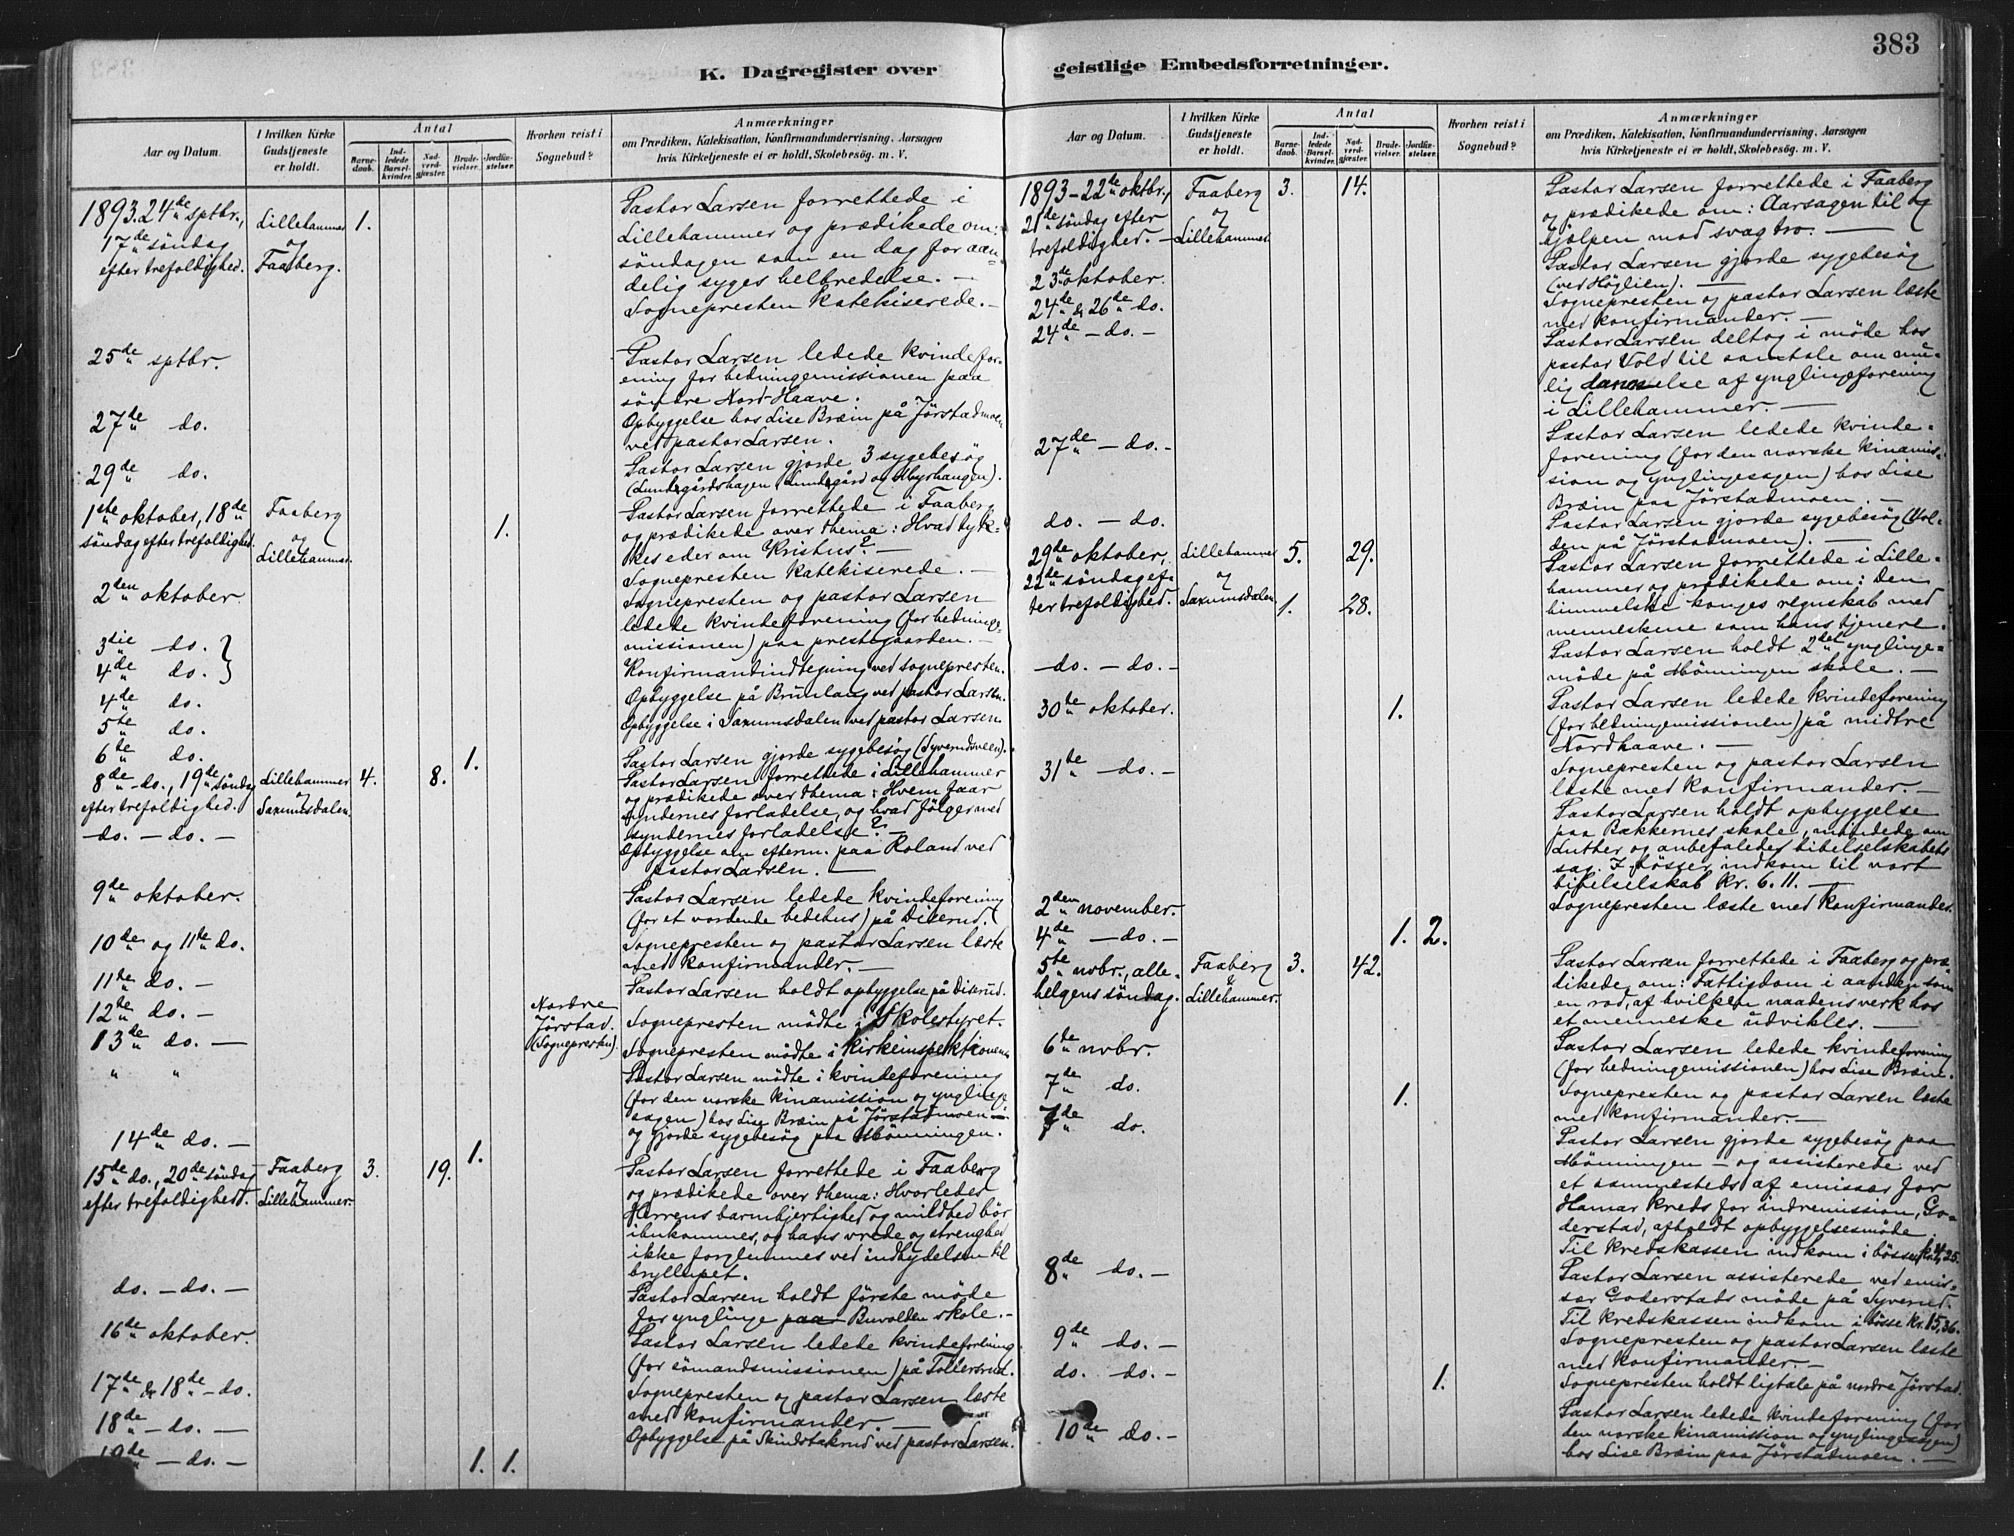 383
K. Dagregister over
Aar og Datum.
I hvilken Kirke Gudstjeneste er holdt.
Antal
Barnedaab.
Indledede Barselkvinder.
Nadverdgjæster.
Brudevielser.
Jordfæstelser.
Hvorhen reist i Sognebud?
Anmærkninger
om Prædiken, Katekisation, Konfirmandundervisning, Aarsagen
hvis Kirketjeneste ei er holdt, Skolebesög. m. V.
1893. 24de sptbr., Lillehammer 1. Pastor Larsen forrettede i
17de söndag og Lillehammer og prædikede om:
efter trefoldighed. Faaberg. söndagen som en dag for aan-
delig syges helbredelse. —
Sognepresten katekiserede. —
25de sptbr. Pastor Larsen ledede kvindefor-
ening for hedningemissionen paa
söndre Nord-Haave.
27de do. Opbyggelse hos Lise Bræin på Jörstadmoen
ved pastor Larsen.
29de do. Pastor Larsen gjorde 3 sygebesög
(Lundgårdshagen, Lundgård og Myrhaugen).
1ste oktober, 18de Faaberg 1. Pastor Larsen forrettede i Faaberg
söndag efter trefoldighed. og og prædikede over thema: Hvad tyk-
Lillehammer. kes eder om Kristus? —
Sognepresten katekiserede. —
2den oktober Sognepresten og pastor Larsen
ledede kvindeforening (for hedninge-
missionen) paa prestegaarden. —
3die do. }
4de do. } Konfirmandindtegning ved sognepresten.
4de do. Opbyggelse på Brunlaug ved pastor Larsen.
5te do. Opbyggelse i Saxumsdalen ved pastor Larsen.
6te do. 1. Pastor Larsen gjorde sygebesög (Syverudsveen).
8de do., 19de söndag Lillehammer 4. 8. Pastor Larsen forrettede i Lillehammer
efter trefoldighed. Saxumsdalen. og prædikede over thema: Hvem faar
syndernes forladelse, og hvad fölger med
syndernes forladelse? —
— do. — do. — Opbyggelse om efterm. paa Roland ved
pastor Larsen. —
9de oktober. Pastor Larsen ledede kvindeforening
(for et vordende bedehus) på Diserud.
10de og 11te do. Sognepresten og pastor Larsen læste
med konfirmander. —
11te do. — Pastor Larsen holdt opbyggelse på Diserud.
12te do. — Nordre Jörstad. (Sognepresten). Sognepresten mödte i Skolestyret.
13de do. — Sognepresten mödte i kirkeinspektionen.
" " Pastor Larsen mödte i kvindeforening
(for den norske kinamission og ynglinge-
sagen) hos Lise Bræin på Jörstadmoen —
og gjorde sygebesög paa Mönningen.
14de do. — 1.
15de do., 20de söndag Faaberg 3. 19. Pastor Larsen forrettede i Faaberg
efter trefoldighed. Lillehammer. og prædikede over thema: Hvorledes
Herrens barmhjertighed og mildhed bör
ihukommes, og hans vrede og strenghed
ikke forglemmes ved indbydelsen til
bryllupet.
do. — do. — Pastor Larsen holdt förste möde
for ynglinge paa Buvolden skole. —
16de oktober. Pastor Larsen ledede kvindeforening
(for sömandsmissionen) på Tollersrud.
17de & 18de — do. Sognepresten og pastor Larsen læste
med konfirmander. —
18de — do. — Opbyggelse på Skindstakrud ved pastor Larsen.
19de — do. — 1. 1.
geistlige Embedsforretninger.
Aar og Datum.
I hvilken Kirke Gudstjeneste er holdt.
Antal
Barnedaab.
Indledede Barselkvinder.
Nadverdgjæster.
Brudevielser.
Jordfæstelser.
Hvorhen reist i Sognebud?
Anmærkninger
om Prædiken, Katekisation, Konfirmandundervisning, Aarsagen
hvis Kirketjeneste ei er holdt, Skolebesög. m. V.
1893 – 22de oktbr., Faaberg 3. 14. Pastor Larsen forrettede i Faaberg
21de söndag efter og og prædikede om: Aarsagen til og
trefoldighed. — Lillehammer. hjælpen mod svag tro. —
23de oktober. Pastor Larsen gjorde sygebesög
(ved Höglien). —
24de & 26de do. Sognepresten og pastor Larsen læste
med konfirmander. —
24de — do. — Pastor Larsen deltog i möde hos
pastor Vold til samtale om mu-
lig dannelse af ynglingeforening
i Lillehammer. —
27de — do. — Pastor Larsen ledede kvinde-
forening (for den norske kinamis-
sion og ynglingesagen) hos Lise
Bræin paa Jörstadmoen. —
do. — do. Pastor Larsen gjorde sygebesög (Vol-
den på Jörstadmoen). —
29de oktober, Lillehammer 5. 29. Pastor Larsen forrettede i Lille-
22de söndag ef- og hammer og prædikede om: Den
ter trefoldighed. Saxumsdalen. 1. 28. himmelske konges regnskab med
menneskene som hans tjenere.
— do. — do. — Pastor Larsen holdt 2det ynglinge-
möde på Mönningen skole. —
30te oktober. 1. Pastor Larsen ledede kvindeforening
(for hedningemissionen) på midtre
Nordhaave. —
31te — do. — Sognepresten og pastor Larsen
læste med konfirmander. —
Pastor Larsen holdt opbyggelse
paa Bakkernes skole, mindede om
Luther og anbefalede bibelselskabets
sag. I bösser indkom til vort
bibelselskab kr. 6.11. —
2den november. Sognepresten læste med konfirmander.
4de — do. — 1. 2.
5te novbr., alle- Faaberg 3. 42. Pastor Larsen forrettede i Faaberg og præ-
helgens söndag. & Lillehammer. dikede om: Fattigdom i aanden som
en rod, af hvilken naadens verk hos
et menneske udvikles. —
6te novbr. Pastor Larsen ledede kvindeforening
(for hedningemissionen) hos Lise Bræin.
7de do. 1. Sognepresten og pastor Larsen læste
med konfirmander. —
7de do. Pastor Larsen gjorde sygebesög paa
Mönningen — og assisterede ved
et sammesteds af emissær for
Hamar kreds for indremission, Go-
derstad, afholdt opbyggelsesmöde.
Til kredskassen indkom i bösse kr. 4,25.
8de do. — Pastor Larsen assisterede ved emis-
sær Goderstads möde på Syverud.
Til kredskassen indkom i bösse kr. 15,36.
9de do. — Sognepresten og pastor Larsen læste
med konfirmander. —
do. do. — 1. Sognepresten holdt ligtale på nordre Jörstad.
10de do. — Pastor Larsen ledede kvindeforening (for
den norske kinamission og ynglingesagen)
hos Lise Bræin paa Jörstadmoen. —